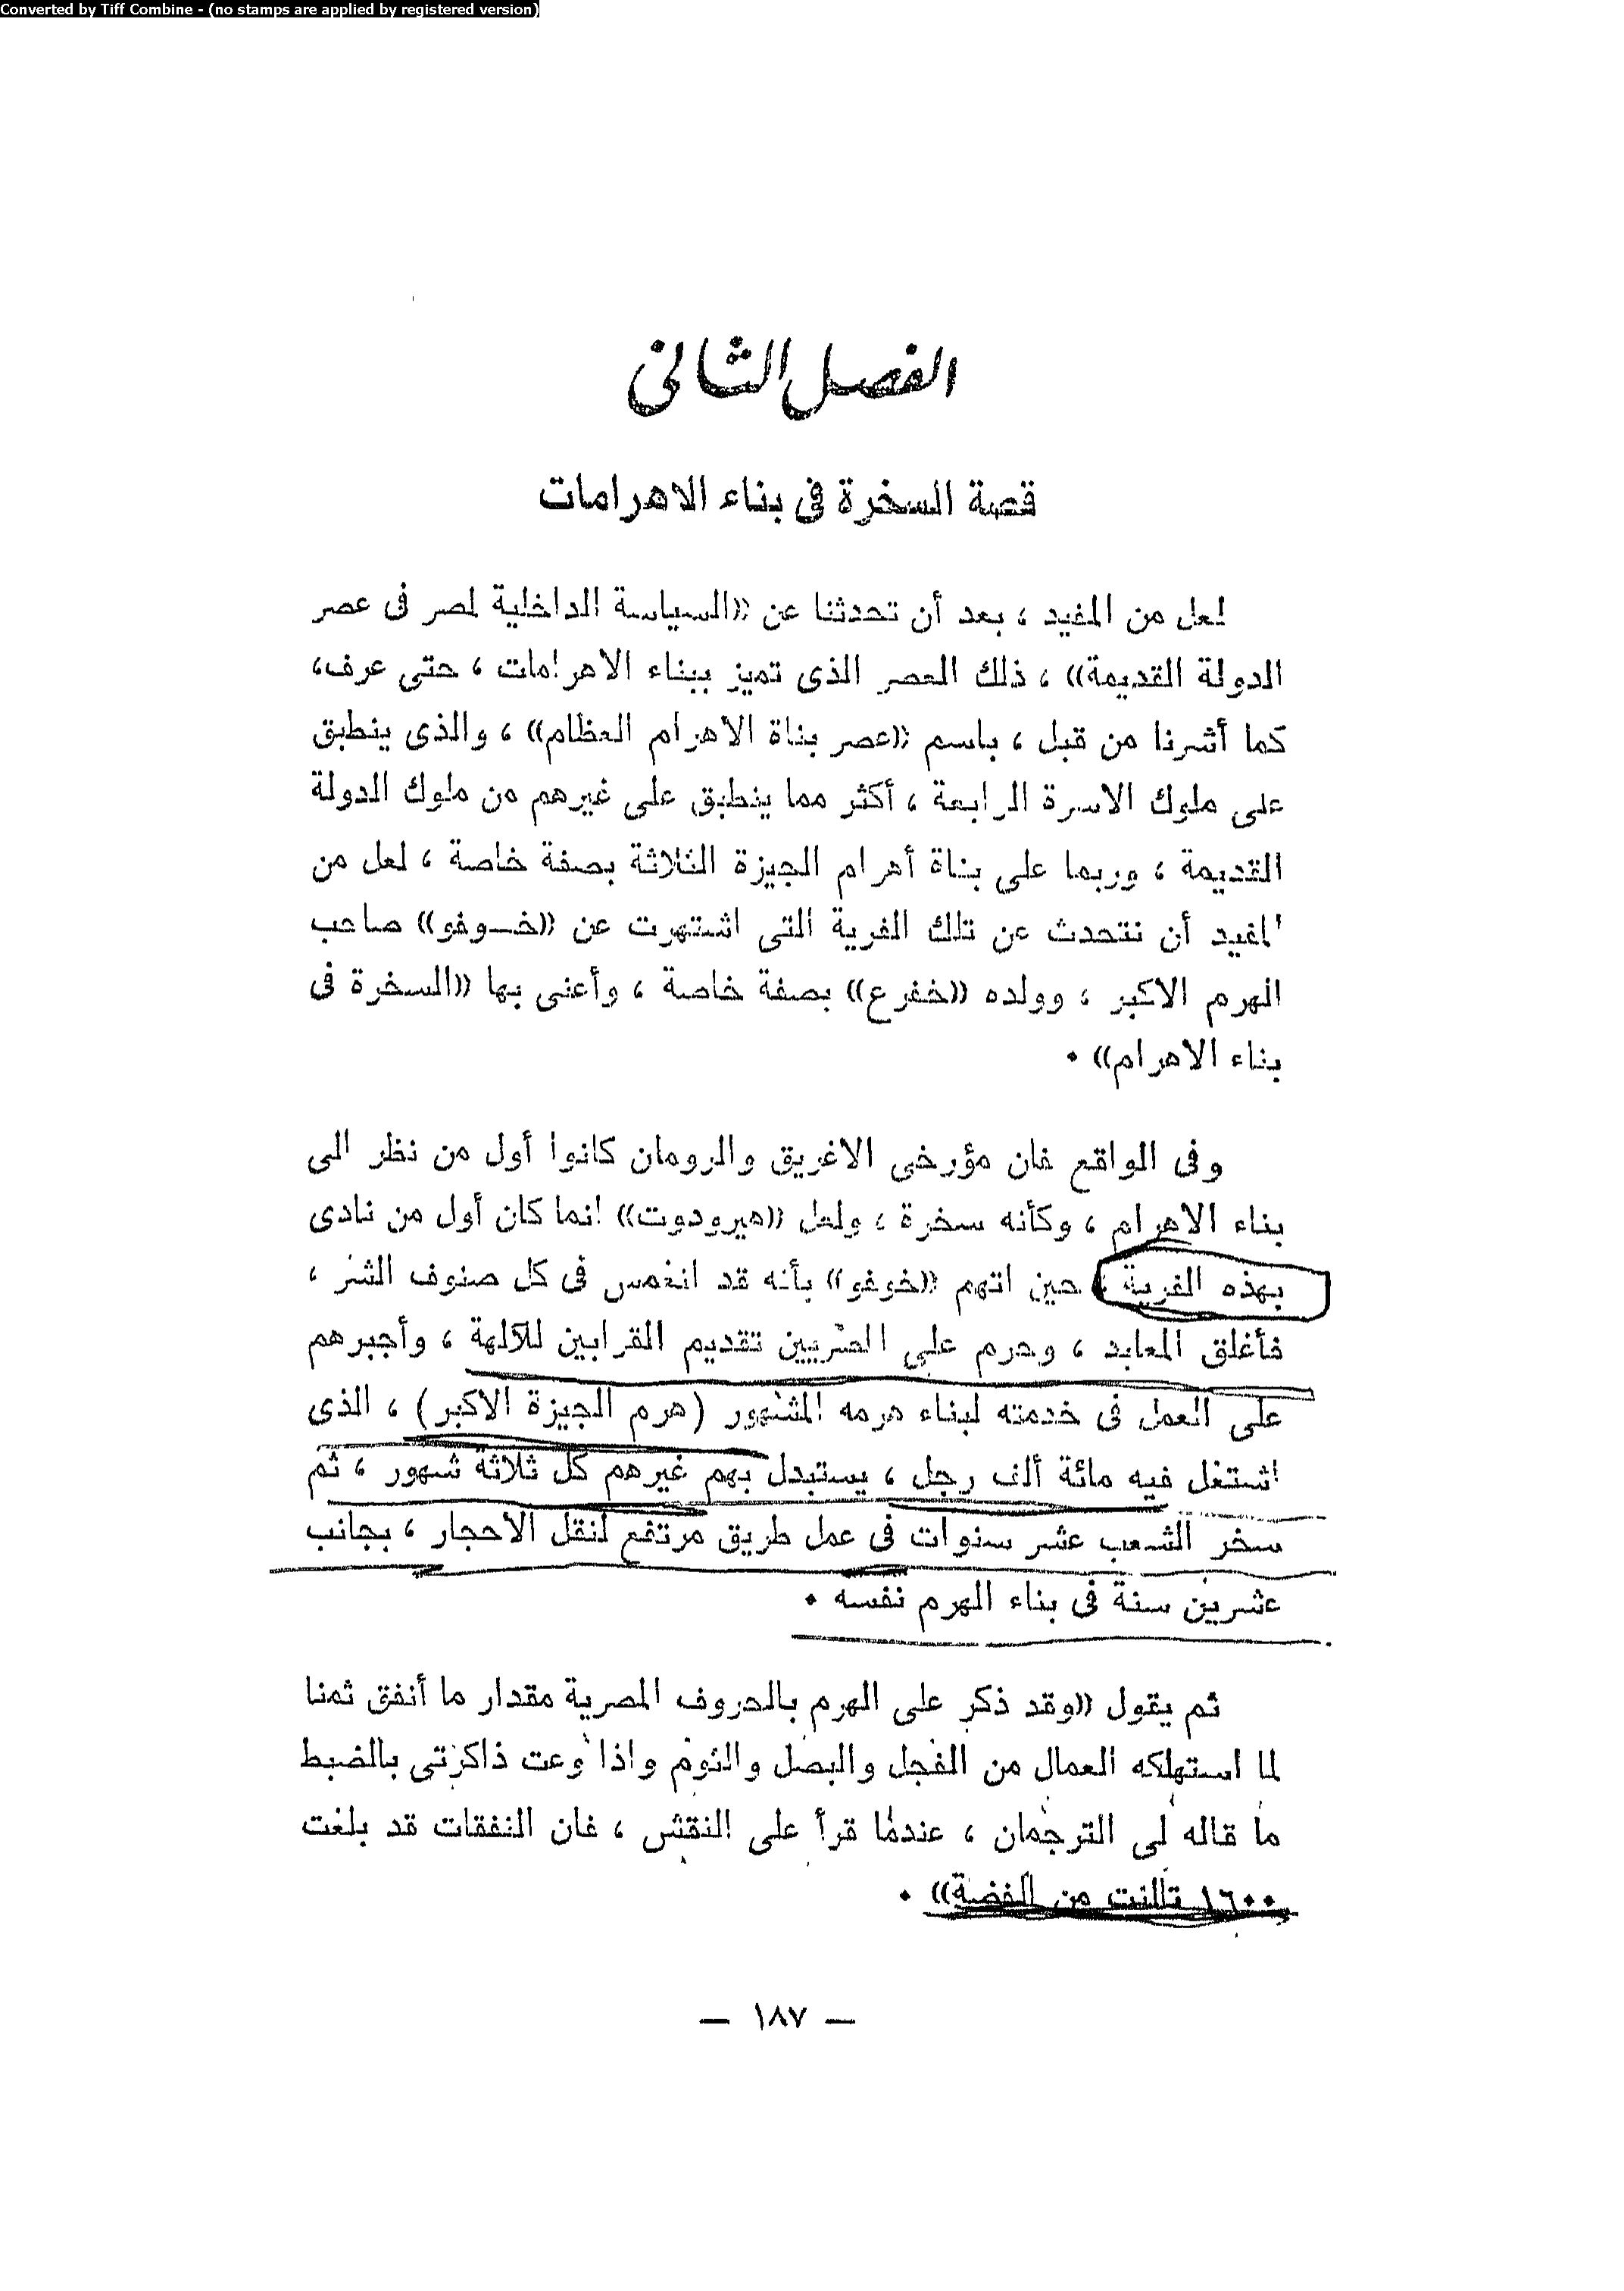 Converted by Tiff Combine - (no stamps are applied by registered version)
الفصل الثانى
قصة السخرة فى بناء الاهرامات
لعل من المفيد ، بعد أن تحدثنا عن «السياسة الداخلية لمصر فى عصر
الدولة القديمة» ، ذلك العصر الذى تميز ببناء الاهرامات ، حتى عرف،
كما أشرنا من قبل ، باسم «عصر بناة الاهرام العظام» ، والذى ينطبق
على ملوك الاسرة الرابعة ، أكثر مما ينطبق على غيرهم من ملوك الدولة
القديمة ، وربما على بناة أهرام الجيزة الثلاثة بصفة خاصة ، لعل من
المفيد أن نتحدث عن تلك الفرية التى اشتهرت عن «خـوفو» صاحب
الهرم الاكبر ، وولده «خفرع» بصفة خاصة ، وأعنى بها «السخرة فى
بناء الاهرام» ٠
وفى الواقع فان مؤرخى الاغريق والرومان كانوا أول من نظر الى
بناء الاهرام ، وكأنه سخرة ، ولعل «هيرودوت» انما كان أول من نادى
بهذه الفرية ، حين اتهم «خوفو» بأنه قد انغمس فى كل صنوف الشر ،
فأغلق المعابد ، وحرم على المصريين تقديم القرابين للآلهة ، وأجبرهم
على العمل فى خدمته لبناء هرمه المشهور (هرم الجيزة الاكبر) ، الذى
اشتغل فيه مائة ألف رجل ، يستبدل بهم غيرهم كل ثلاثة شهور ، ثم
سخر الشعب عشر سنوات فى عمل طريق مرتفع لنقل الاحجار ، بجانب
عشرين سنة فى بناء الهرم نفسه ٠
ثم يقول «وقد ذكر على الهرم بالحروف المصرية مقدار ما أنفق ثمنا
لما استهلكه العمال من الفجل والبصل والثوم واذا وعت ذاكرتى بالضبط
ما قاله لى الترجمان ، عندما قرأ على النقش ، فان النفقات قد بلغت
١٦٠٠ تالنت من الفضة» ٠
— ١٨٧ —